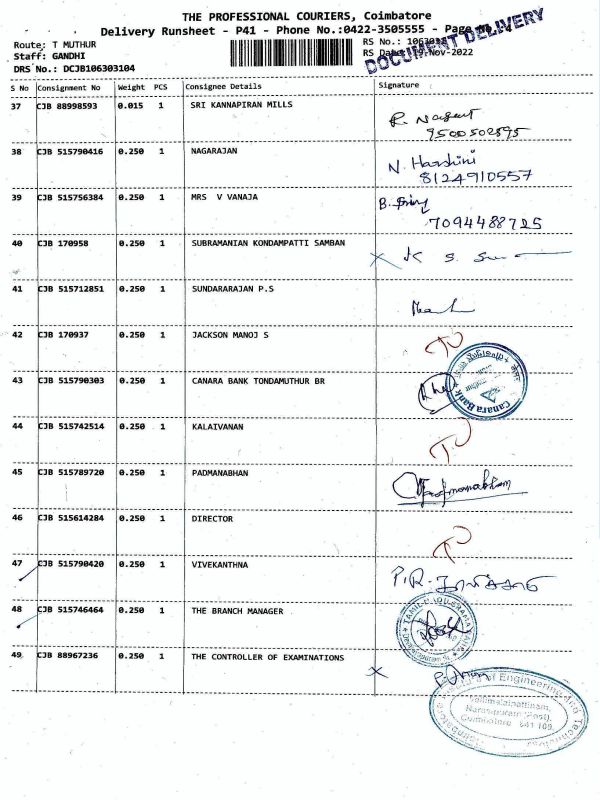 THE PROFESSIONAL COURIERS, Coimbatore
Delivery Runsheet - P41 - Phone No.:0422-3505555 - Page
DOCUMENT DELIVERY
Route: T MUTHUR
Staff: GANDHI
DRS No.: DCJB106303104
RS No.:
RS Date: 19-Nov-2022
S No Consignment No Weight PCS Consignee Details Signature
37 CJB 88998593 0.015 1 SRI KANNAPIRAN MILLS
9500502895
38 CJB 515790416 0.250 1 NAGARAJAN N. Harshini
8124910557
39 CJB 515756384 0.250 1 MRS V VANAJA
7094488725
40 CJB 170958 0.250 1 SUBRAMANIAN KONDAMPATTI SAMBAN
41 CJB 515712851 0.250 1 SUNDARARAJAN P.S
42 CJB 170937 0.250 1 JACKSON MANOJ S
43 CJB 515790303 0.250 1 CANARA BANK TONDAMUTHUR BR
Canara Bank
44 CJB 515742514 0.250 1 KALAIVANAN
45 CJB 515789720 0.250 1 PADMANABHAN Padmanabham
46 CJB 515614284 0.250 1 DIRECTOR
47 CJB 515790420 0.250 1 VIVEKANTHNA P.R.
48 CJB 515746464 0.250 1 THE BRANCH MANAGER
49 CJB 88967236 0.250 1 THE CONTROLLER OF EXAMINATIONS
of Engineering and Technology
Narasipuram (Post),
Coimbatore - 641 109.